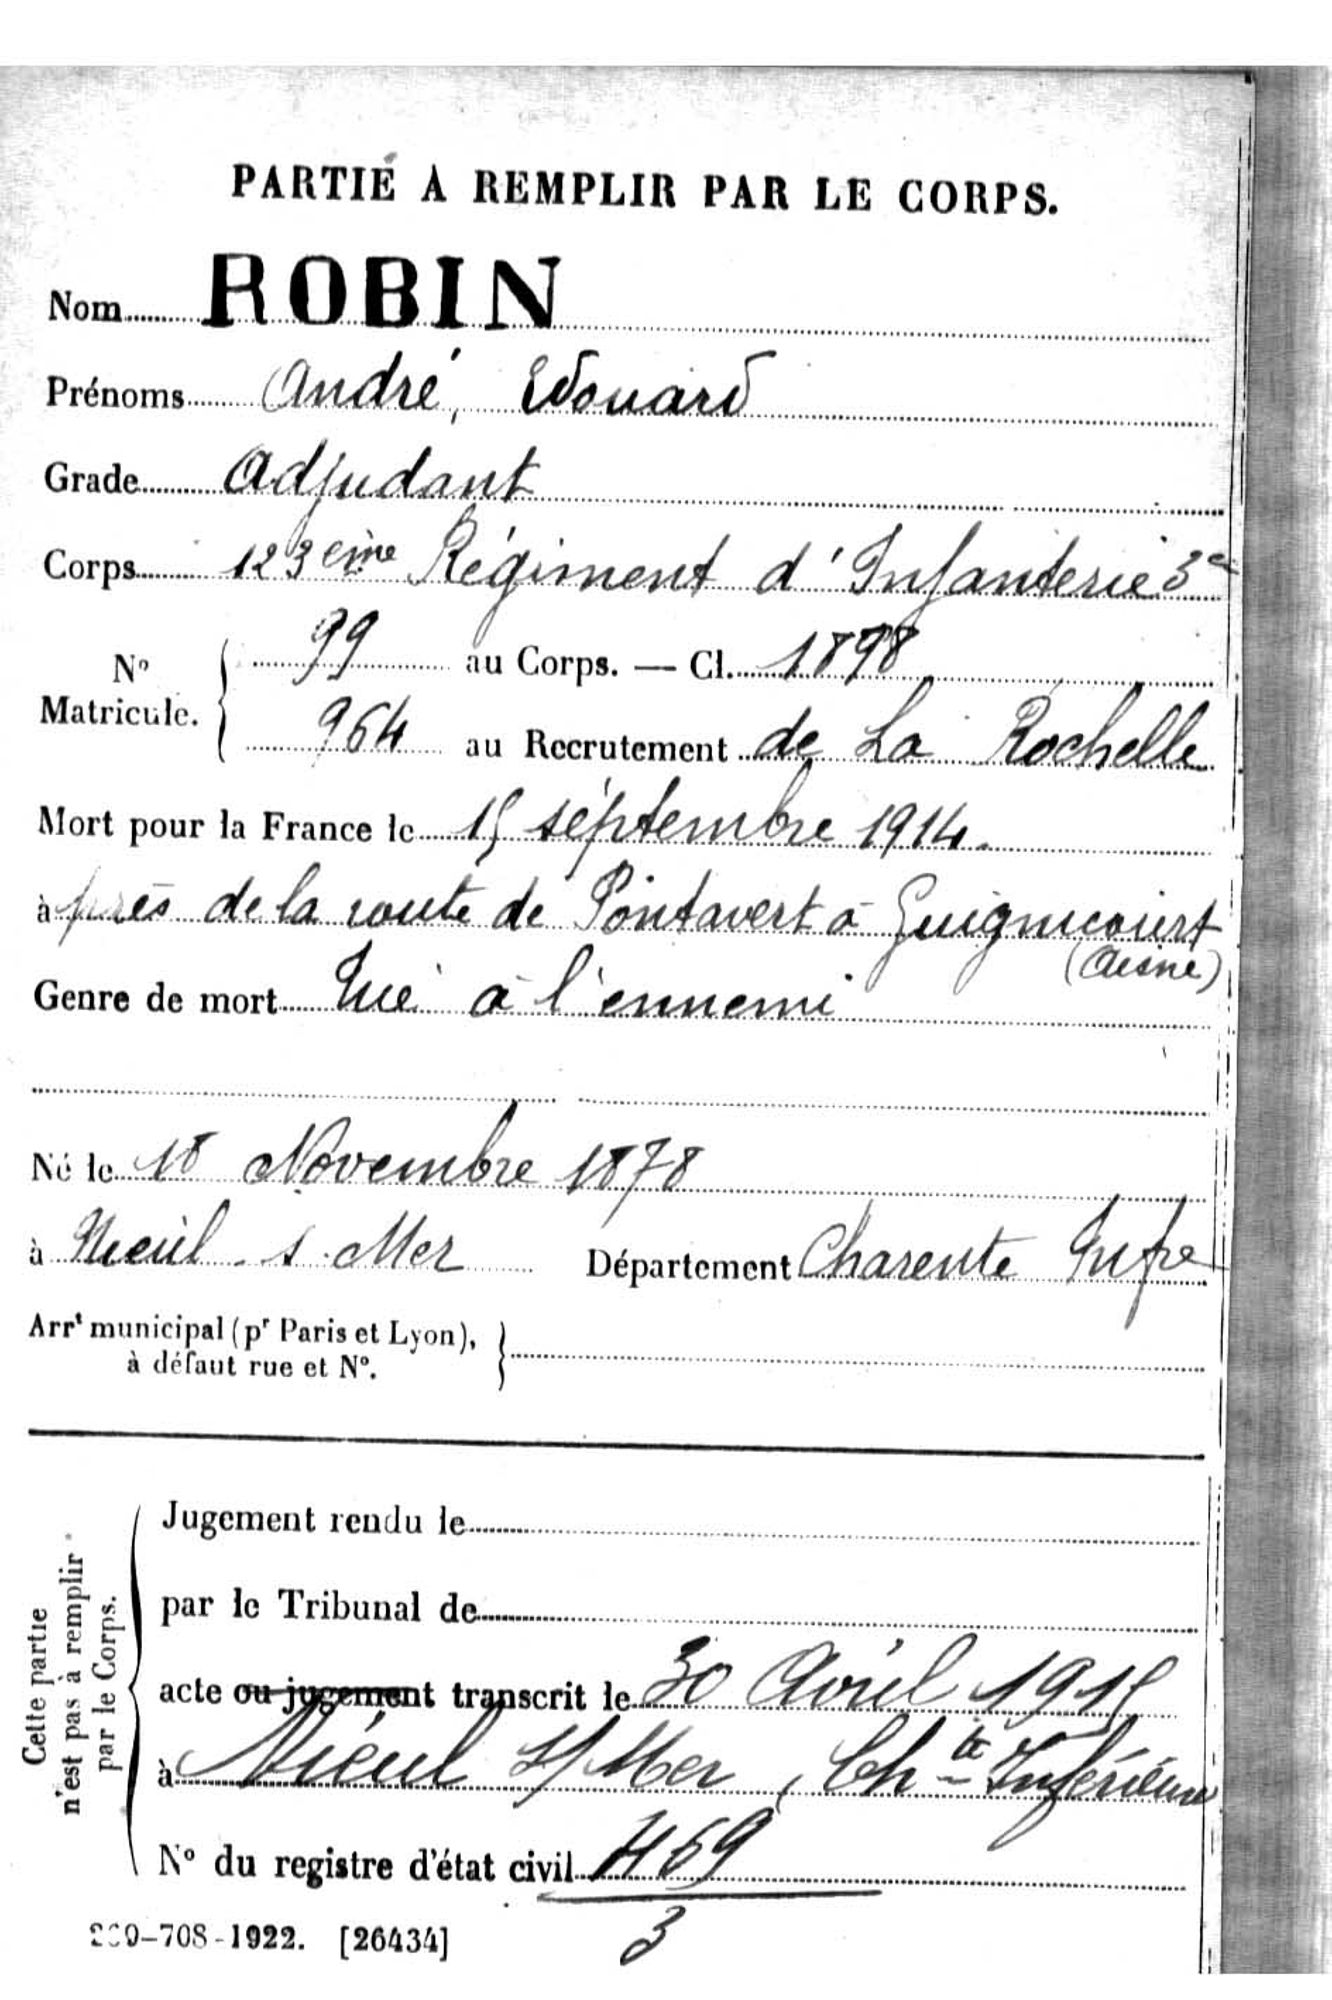 PARTIE A REMPLIR PAR LE CORPS.
Nom ROBIN
Prénoms André, Edouard
Grade Adjudant
Corps 123ème Régiment d'Infanterie 3e
No Matricule. { 99 au Corps. — Cl. 1898
964 au Recrutement de La Rochelle
Mort pour la France le 15 septembre 1914.
à près de la route de Pontavert à Guignicourt
(Aisne)
Genre de mort Tué à l'ennemi
Né le 18 Novembre 1878
à Nieul s. Mer Département Charente Infre
Arrt municipal (pr Paris et Lyon), à défaut rue et No. }
Cette partie n'est pas à remplir par le Corps.
Jugement rendu le
par le Tribunal de
acte ou jugement transcrit le 30 Avril 1915
à Nieul s/ Mer, Chte Inférieure
No du registre d'état civil 469
3
-708-1922. [26434]